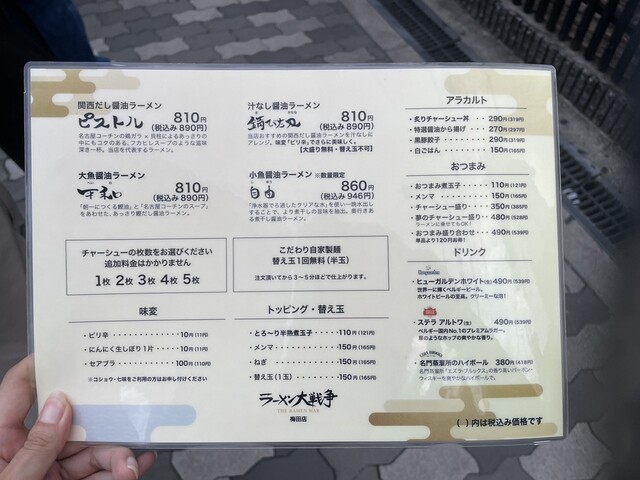 関西だし醤油ラーメン
ピストル 810円
(税込み 890円)
名古屋コーチンの鶏ガラ × 貝柱によるあっさりの
中にもコクのある、フカヒレスープのような旨味
深き一杯。当店を代表するラーメン。
汁なし醤油ラーメン
錆びた刃 810円
(税込み 890円)
当店おすすめの関西だし醤油ラーメンを汁なしに
アレンジ。味変「ピリ辛」でさらに美味しく。
【大盛り無料・替え玉不可】
大魚醤油ラーメン
平和 810円
(税込み 890円)
「明一につくる鰹油」と「名古屋コーチンのスープ」
をあわせた、あっさり鰹だし醤油ラーメン。
小魚醤油ラーメン ※数量限定
自由 860円
(税込み 946円)
「浄水器でろ過したクリアな水」を使い一晩水出し
することで、より煮干しの旨味を抽出。奥行きある
煮干し醤油ラーメン。
チャーシューの枚数をお選びください
追加料金はかかりません
1枚 2枚 3枚 4枚 5枚
こだわり自家製麺
替え玉1回無料(半玉)
注文頂いてから3〜5分ほどで仕上がります。
味変
・ピリ辛 10円(11円)
・にんにく生しぼり1片 10円(11円)
・セアブラ 100円(110円)
*コショウ・七味をご利用の方はお申し付けください
トッピング・替え玉
・とろ〜り半熟煮玉子 110円(121円)
・メンマ 150円(165円)
・ねぎ 150円(165円)
・替え玉(1玉) 150円(165円)
ラーメン大戦争
THE RAMEN WAR
梅田店
アラカルト
・炙りチャーシュー丼 290円(319円)
・特選醤油から揚げ 270円(297円)
・黒豚餃子 290円(319円)
・白ごはん 150円(165円)
おつまみ
・おつまみ煮玉子 110円(121円)
・メンマ 150円(165円)
・チャーシュー盛り 350円(385円)
・夢のチャーシュー盛り 480円(528円)
ラーメンに乗せてもOK!
・おつまみ盛り合わせ 490円(539円)
単品より120円お得!
ドリンク
Hoegaarden
・ヒューガルデンホワイト(生)490円(539円)
世界一に輝くベルギービール。
ホワイトビールの至高。クリーミーな泡!
・ステラ アルトワ(生) 490円(539円)
ベルギー国内No.1のプレミアムラガー。
華のようなホップの爽やかな香り。
EZRA BROOKS
・名門蒸溜所のハイボール 380円(418円)
名門蒸溜所「エズラ・ブルックス」の香り高いバーボン・
ウィスキーを爽やかなハイボールで。
( )内は税込み価格です